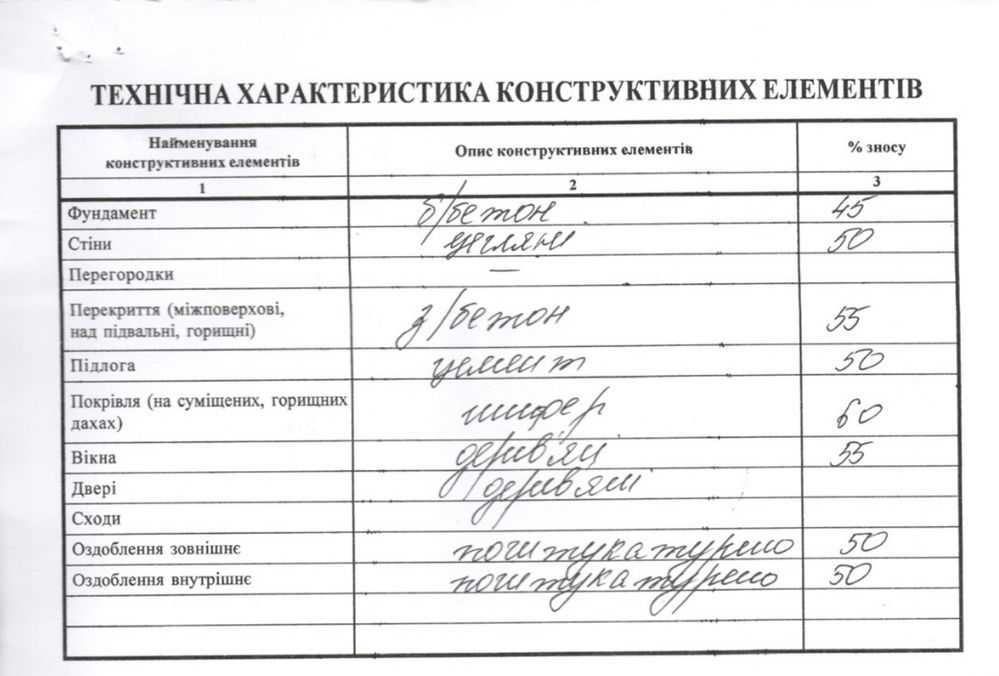 ТЕХНІЧНА ХАРАКТЕРИСТИКА КОНСТРУКТИВНИХ ЕЛЕМЕНТІВ
Найменування
конструктивних елементів
Опис конструктивних елементів
% зносу
1 2 3
Фундамент б/бетон 45
Стіни цегляні 50
Перегородки —
Перекриття (міжповерхові,
над підвальні, горищні) з/бетон 55
Підлога цемент 50
Покрівля (на суміщених, горищних
дахах) шифер 60
Вікна дерив'яні 55
Двері дерив'яні
Сходи
Оздоблення зовнішнє поштукатурено 50
Оздоблення внутрішнє поштукатурено 50